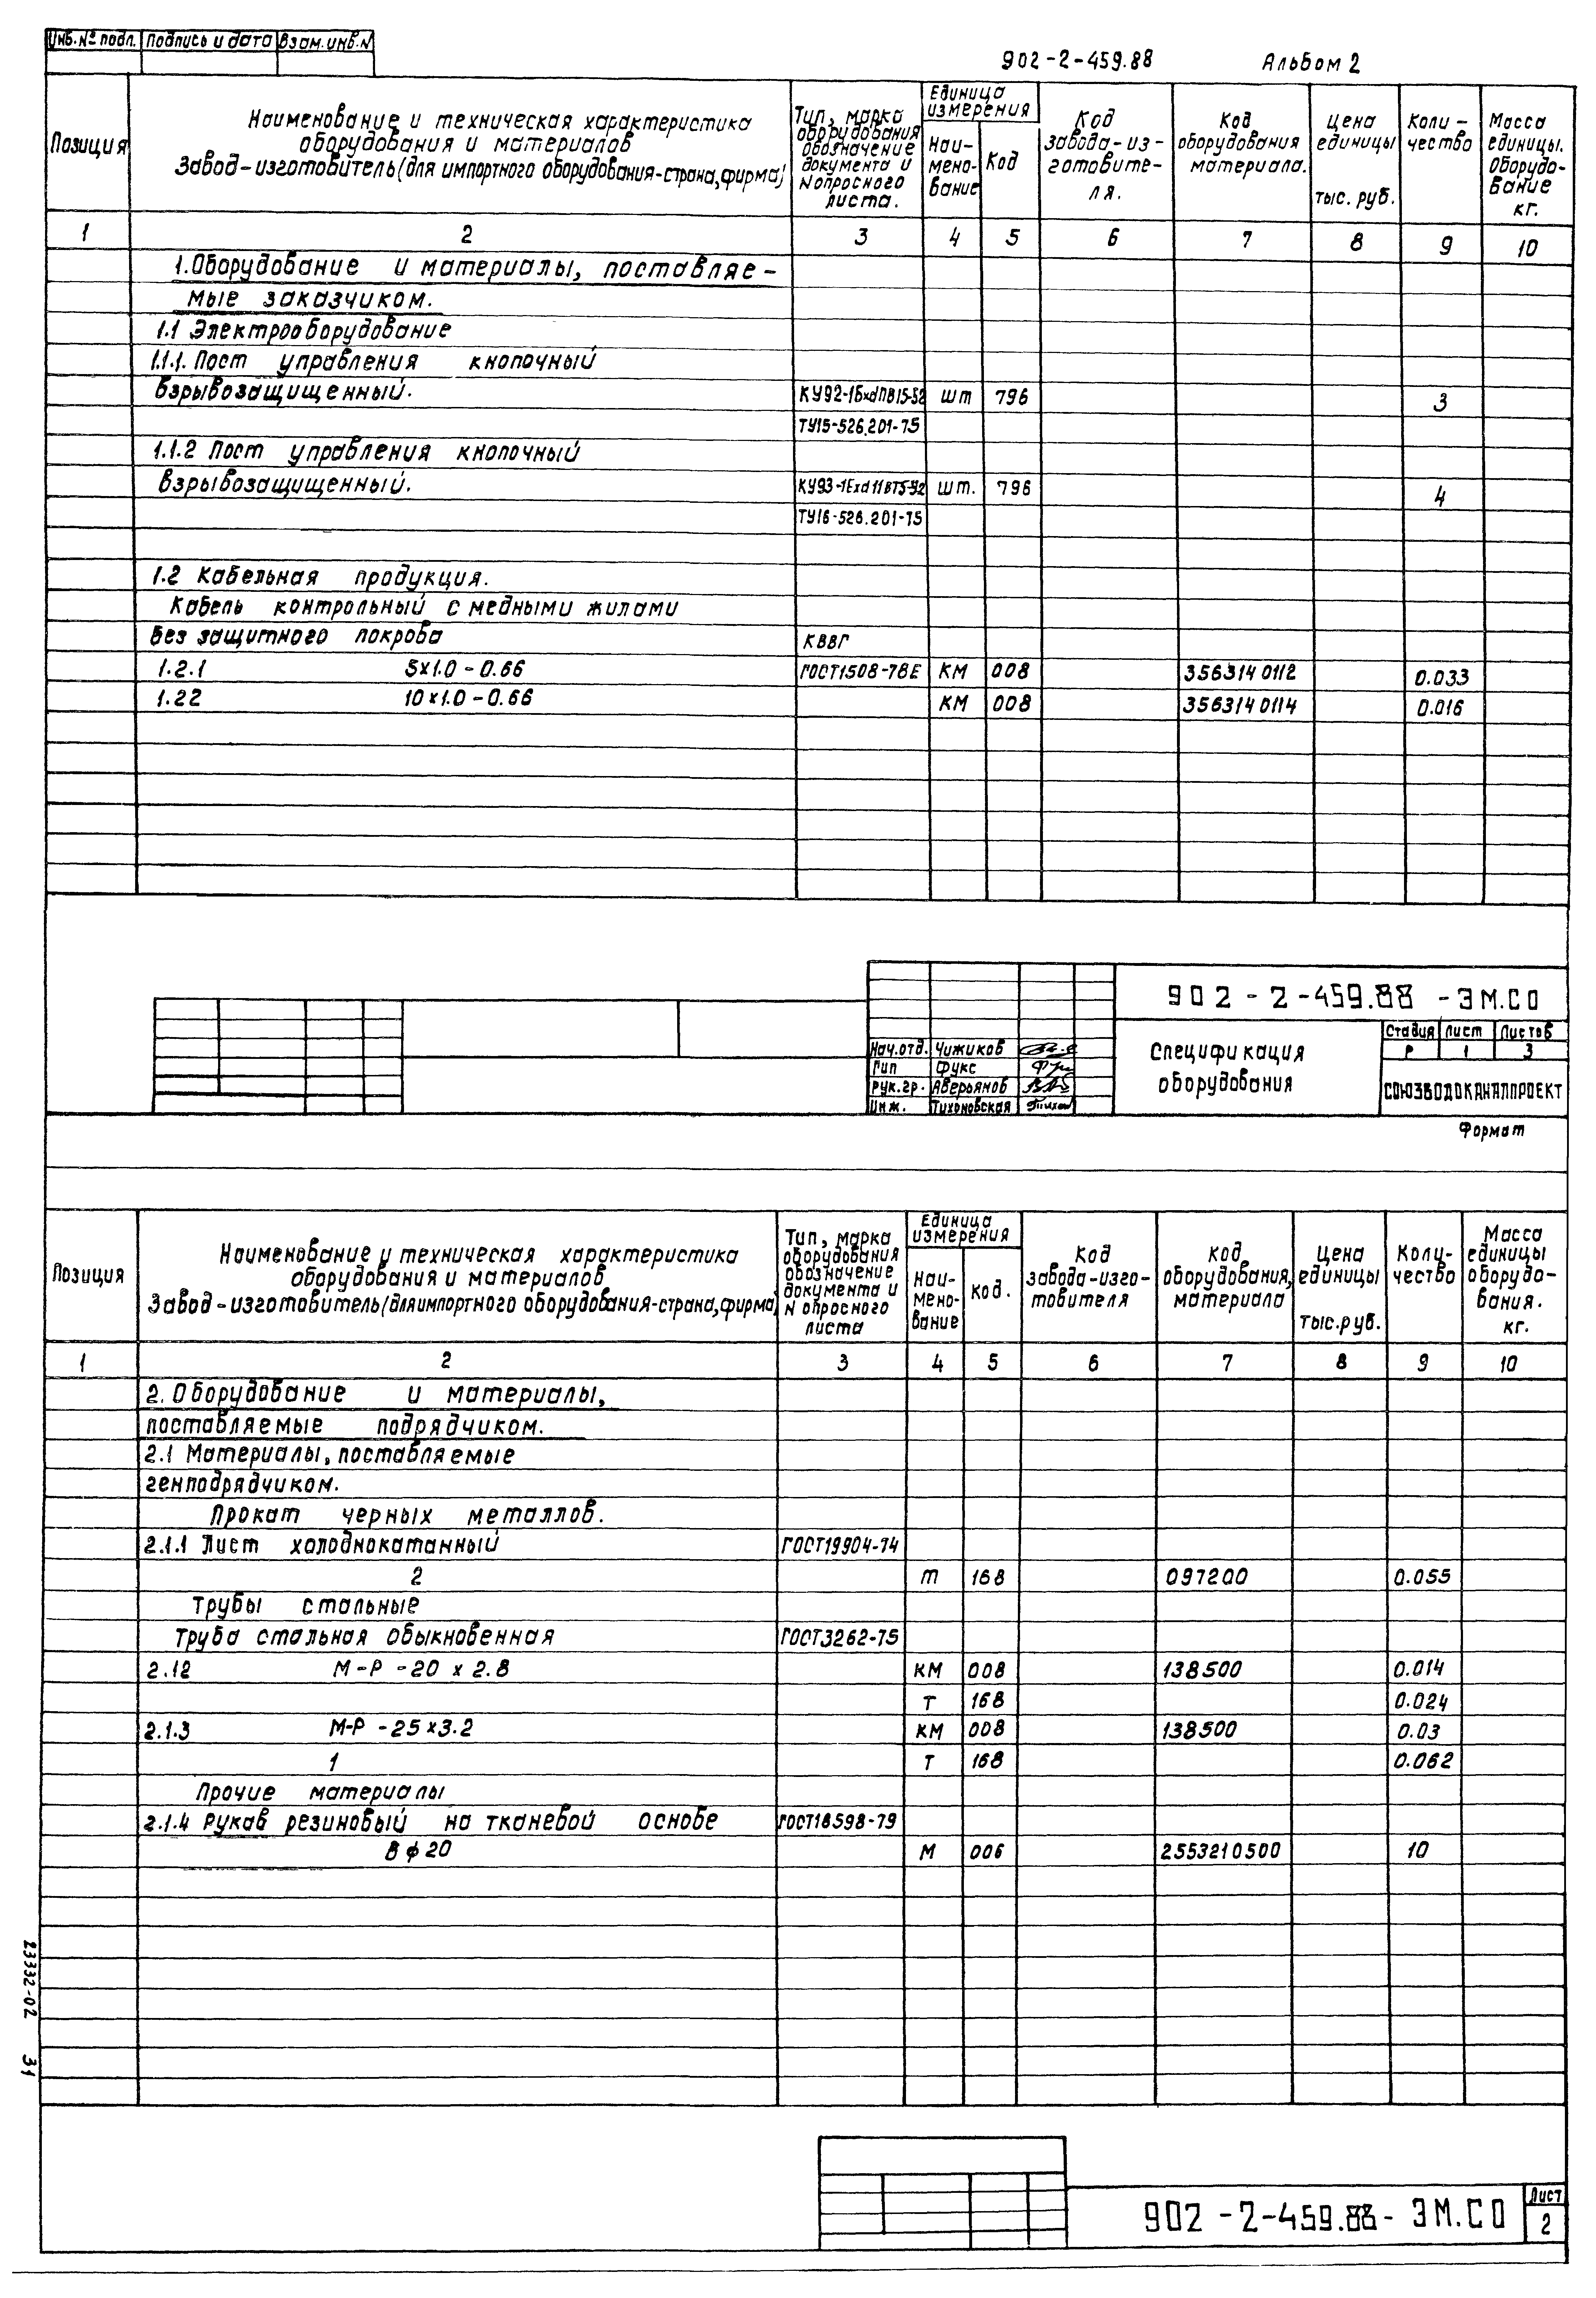 Инв.№ подл. Подпись и дата Взам.инв.N
902-2-459.88 Альбом 2
Позиция
Наименование и техническая характеристика
оборудования и материалов
Завод-изготовитель(для импортного оборудования-страна,фирма)
Тип, марка
оборудования
обозначение
документа и
N опросного
листа.
Единица
измерения
Наи-
мено-
вание
Код
Код
завода-из-
готовите-
ля.
Код
оборудования
материала.
Цена
единицы
тыс. руб.
Коли-
чество
Масса
единицы.
оборудо-
вание
кг.
1 2 3 4 5 6 7 8 9 10
1.Оборудование и материалы, поставляе-
мые заказчиком.
1.1 Электрооборудование
1.1.1. Пост управления кнопочный
взрывозащищенный. шт 796 3
ТУ15-526.201-75
1.1.2 Пост управления кнопочный
взрывозащищенный. шт. 796 4
ТУ16-526.201-75
1.2 Кабельная продукция.
Кабель контрольный с медными жилами
без защитного покрова КВВГ
1.2.1 5х1.0-0.66 ГОСТ1508-78Е КМ 008 3563140112 0.033
1.22 10х1.0-0.66 КМ 008 3563140114 0.016
902-2-459.88 -ЭМ.СО
Нач.отд. Чижиков
Гип Фукс
Рук.гр. Аверьянов
Инж. Тихоновская
Спецификация
оборудования
Стадия Лист Листов
Р 1 3
СОЮЗВОДОКАНАЛПРОЕКТ
Формат
Позиция
Наименование и техническая характеристика
оборудования и материалов
Завод-изготовитель(для импортного оборудования-страна,фирма)
Тип, марка
оборудования
обозначение
документа и
N опросного
листа
Единица
измерения
Наи-
мено-
вание
Код.
Код
завода-изго-
товителя
Код
оборудования,
материала
Цена
единицы
тыс.руб.
Коли-
чество
Масса
единицы
оборудо-
вания.
кг.
1 2 3 4 5 6 7 8 9 10
2. Оборудование и материалы,
поставляемые подрядчиком.
2.1 Материалы, поставляемые
генподрядчиком.
Прокат черных металлов.
2.1.1 Лист холоднокатанный ГОСТ19904-74
2 т 168 097200 0.055
Трубы стальные
Труба стальная обыкновенная ГОСТ3262-75
2.12 М-Р -20 х 2.8 КМ 008 138500 0.014
Т 168 0.024
2.1.3 М-Р -25х3.2 КМ 008 138500 0.03
1 Т 168 0.062
Прочие материалы
2.1.4 Рукав резиновый на тканевой основе ГОСТ18598-79
В ф 20 М 006 2553210500 10
23332-02 31
902-2-459.88- ЭМ.СО
Лист
2